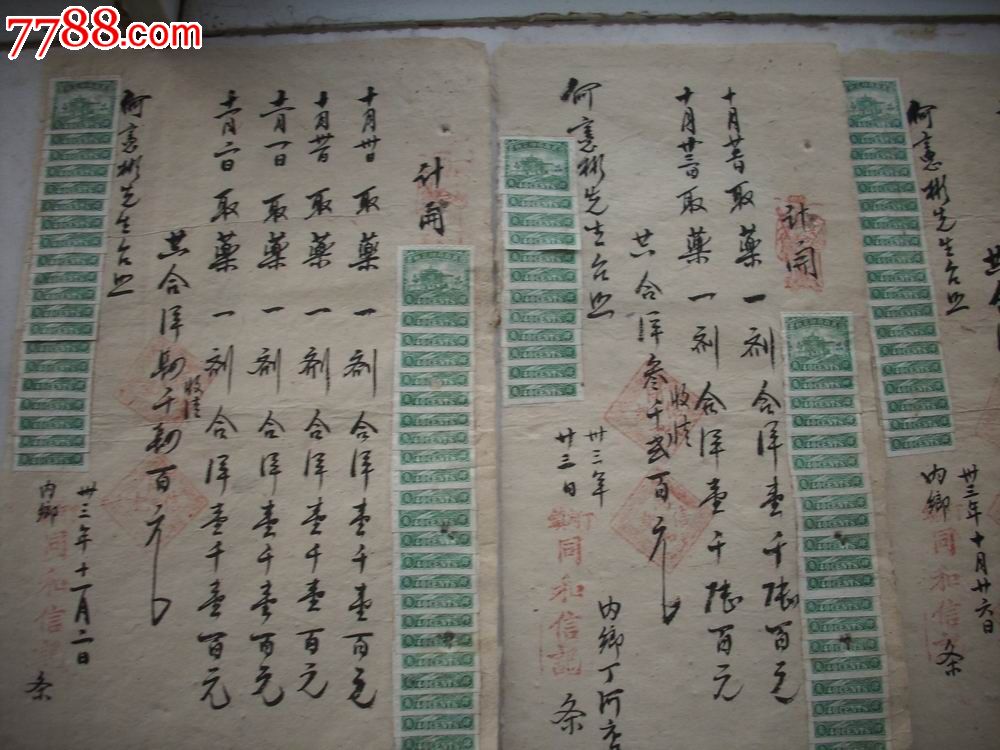 7788.com
计開
十月卅日取藥一剂合洋壹千壹百元
十月卅一日取藥一剂合洋壹千壹百元
十一月一日取藥一剂合洋壹千壹百元
十一月二日取藥一剂合洋壹千壹百元
共合洋肆千肆百元
收清
何憲彬先生台照
卅三年十一月二日
内鄉
同和信
条
40 CENTS
计開
十月廿二日取藥一剂合洋壹千陸百元
十月廿三日取藥一剂合洋壹千陸百元
共合洋叁千弍百元
收清
何憲彬先生台照
卅三年
廿三日
内鄉丁河
同和信記
条
40 CENTS
何憲彬先生台照
卅三年十月廿六日
内鄉
同和信記
条